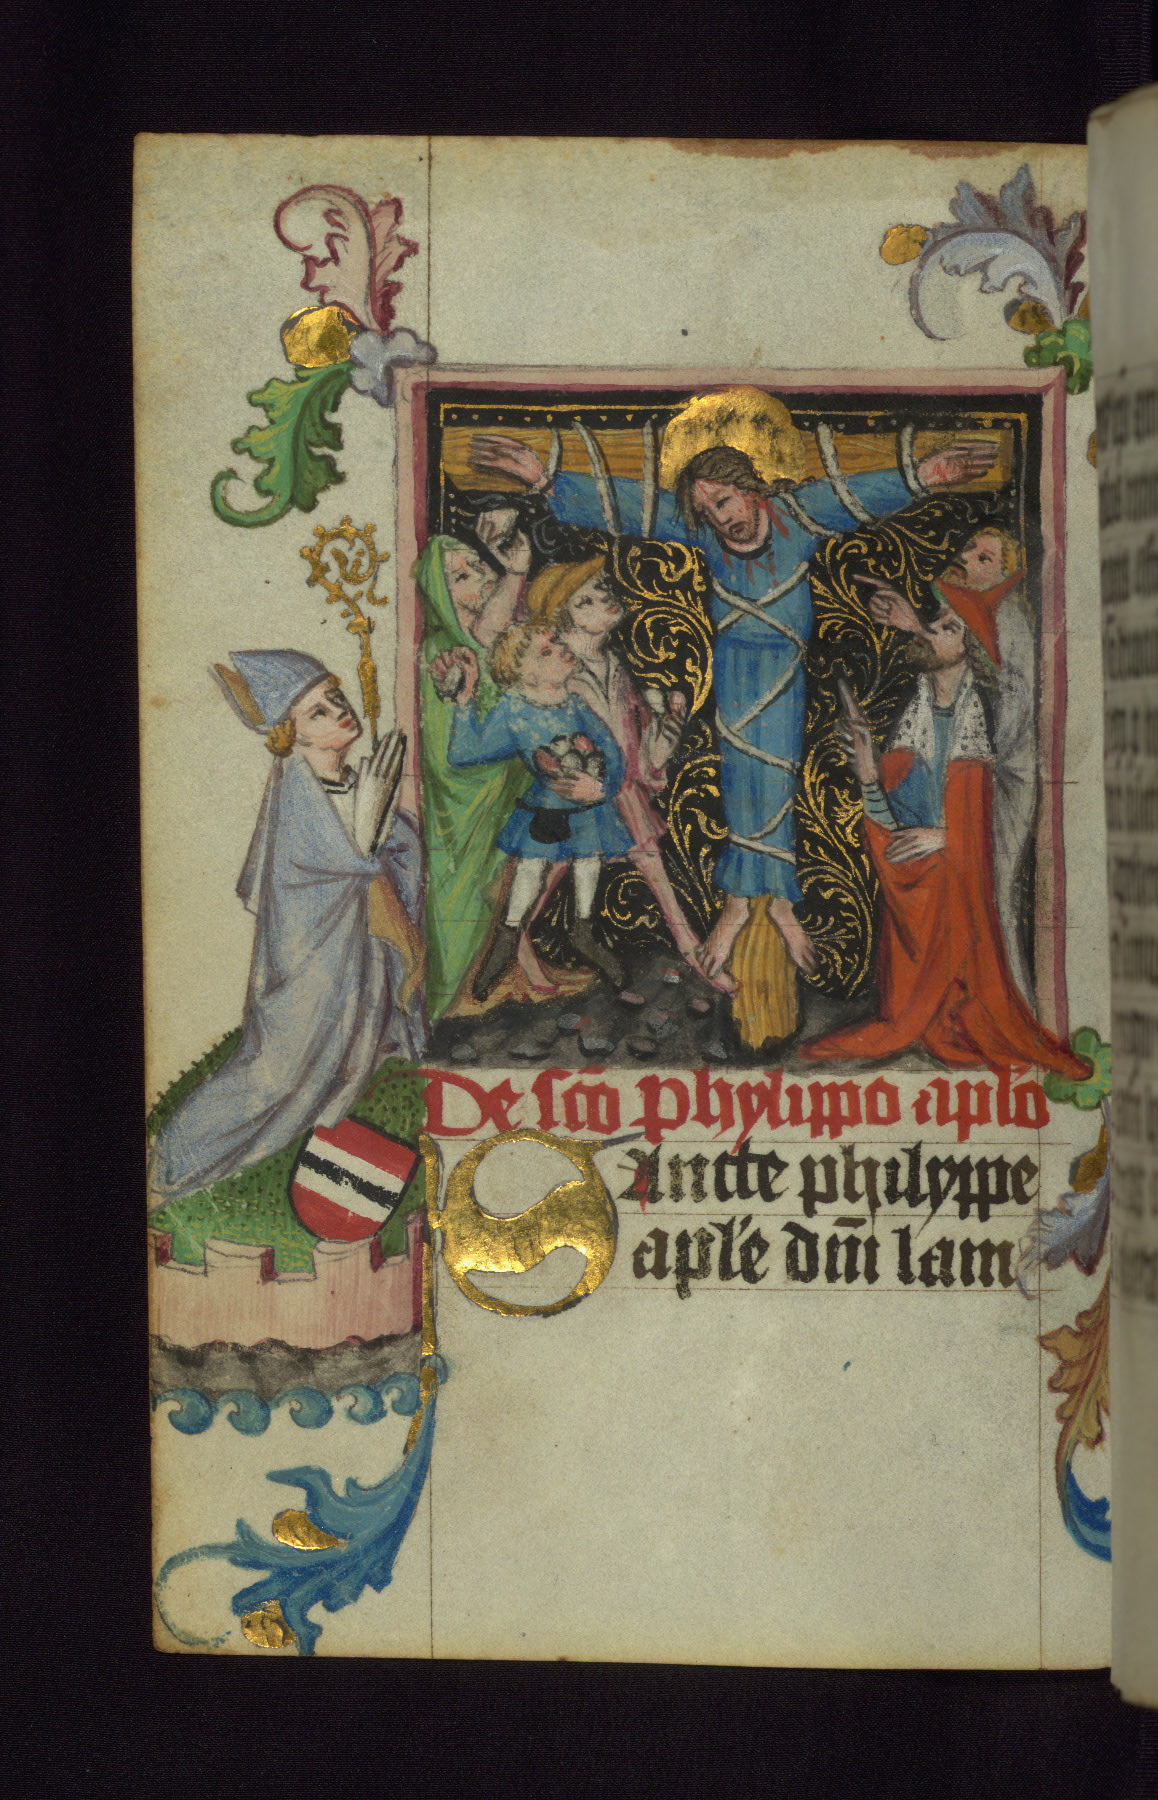 De sco phylippo aplo
Sancte philyppe
aple dni lam